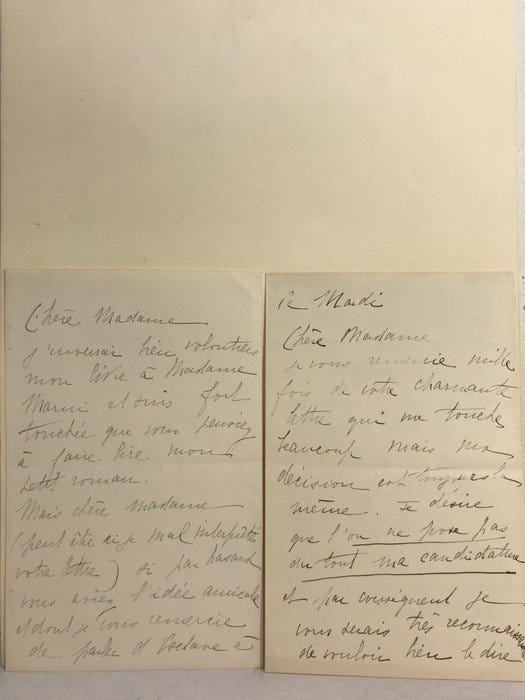 Chère Madame
J'enverrai bien volontiers
mon livre à Madame
Marni et suis fort
touchée que vous pensiez
à faire lire mon
petit roman.
Mais chère Madame
(peut être ai-je mal interprêté
votre lettre) si par hasard
vous aviez l'idée amicale
et dont je vous remercie
de parler d'Esclave à
Ce Mardi
Chère Madame
Je vous remercie mille
fois de votre charmante
lettre qui me touche
beaucoup mais ma
décision est toujours la
même. Je désire
que l'on ne pose pas
du tout ma candidature
et par conséquent je
vous serais très reconnaissante
de vouloir bien le dire